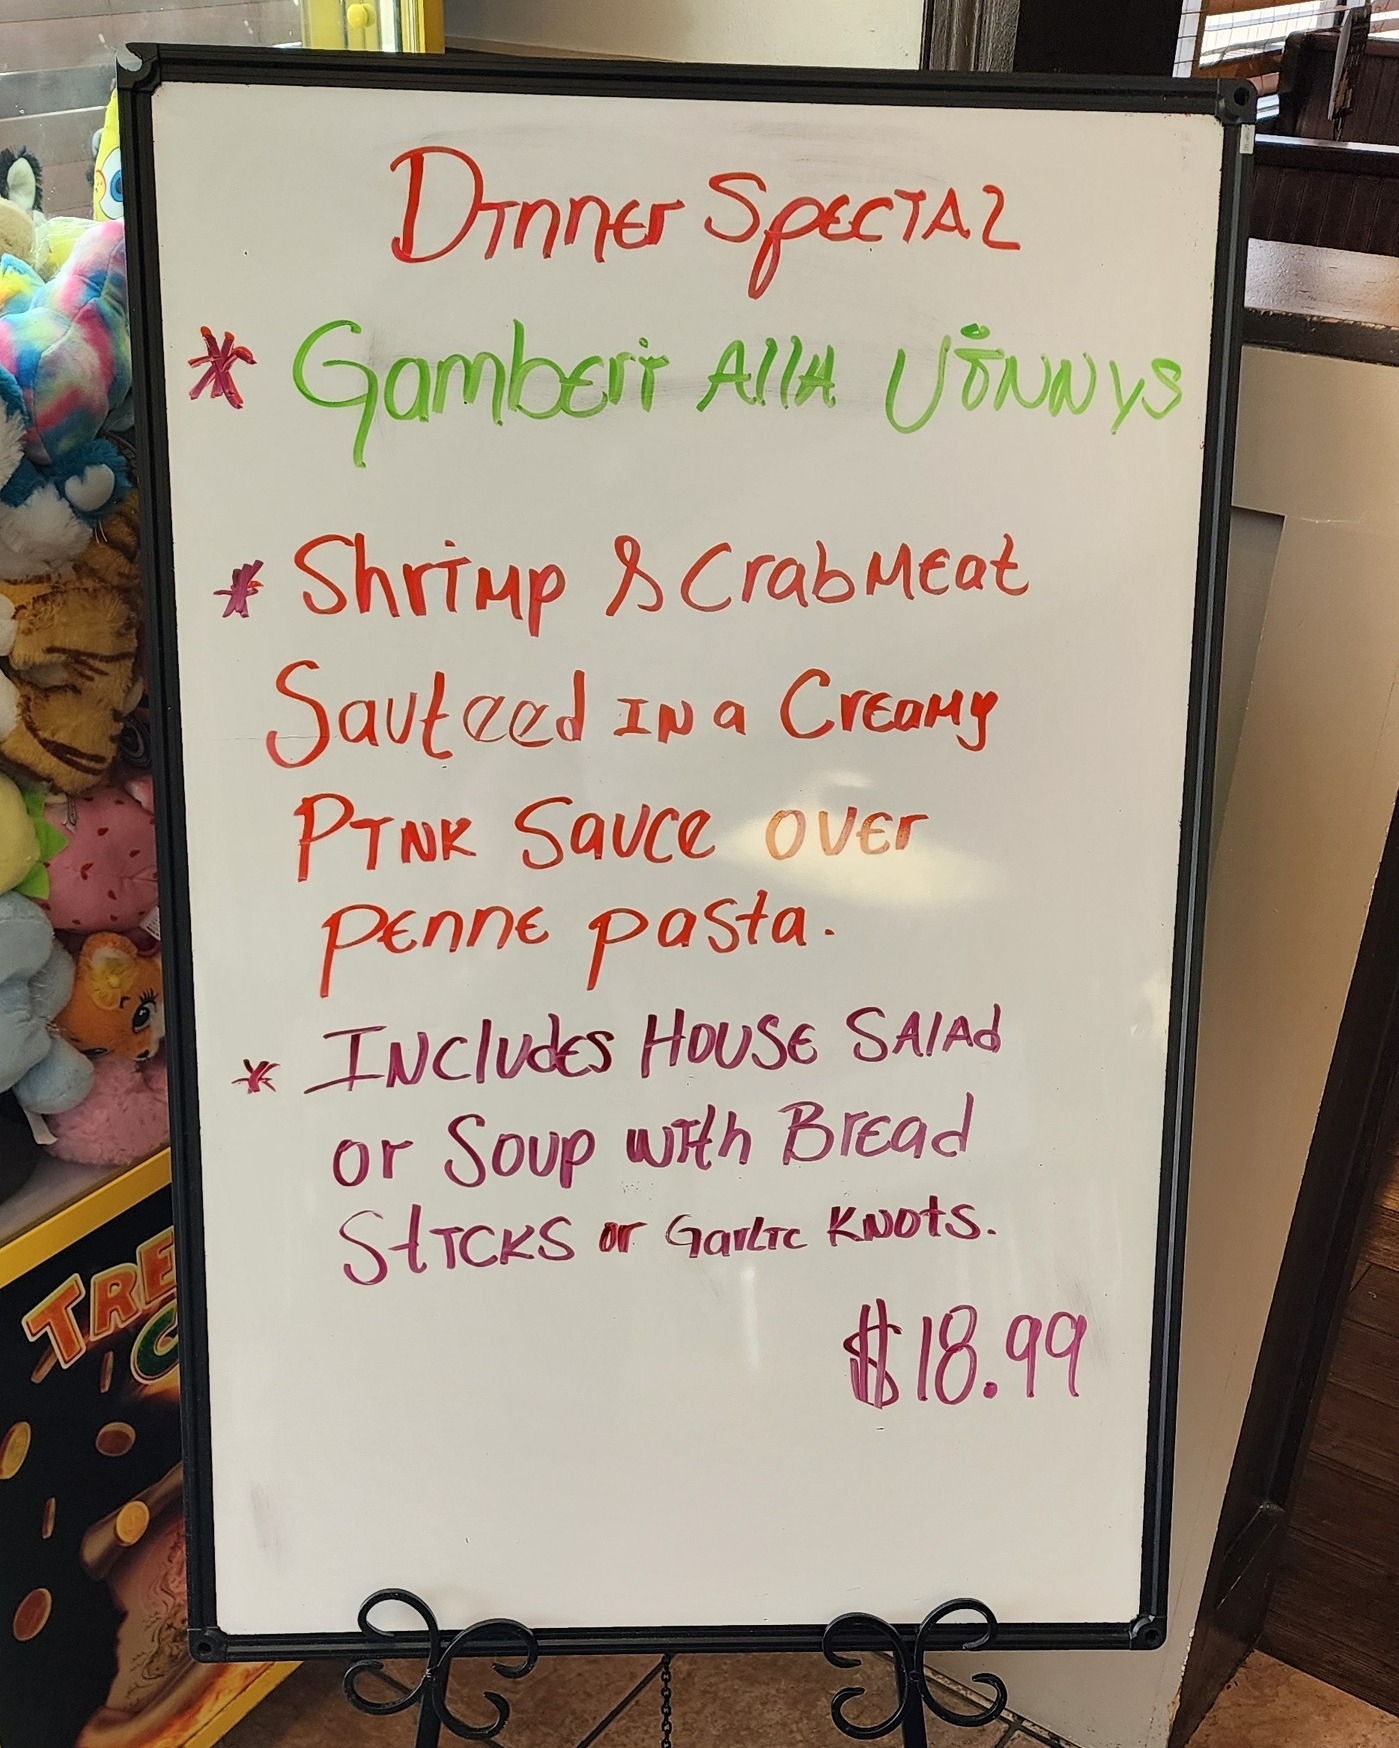 Dinner Special
* Gamberi Alla Vinnys
* Shrimp & Crab Meat
Sauteed IN a Creamy
Pink Sauce over
penne pasta.
* Includes House Salad
or Soup with Bread
Sticks or Garlic Knots.
$18.99
TRE